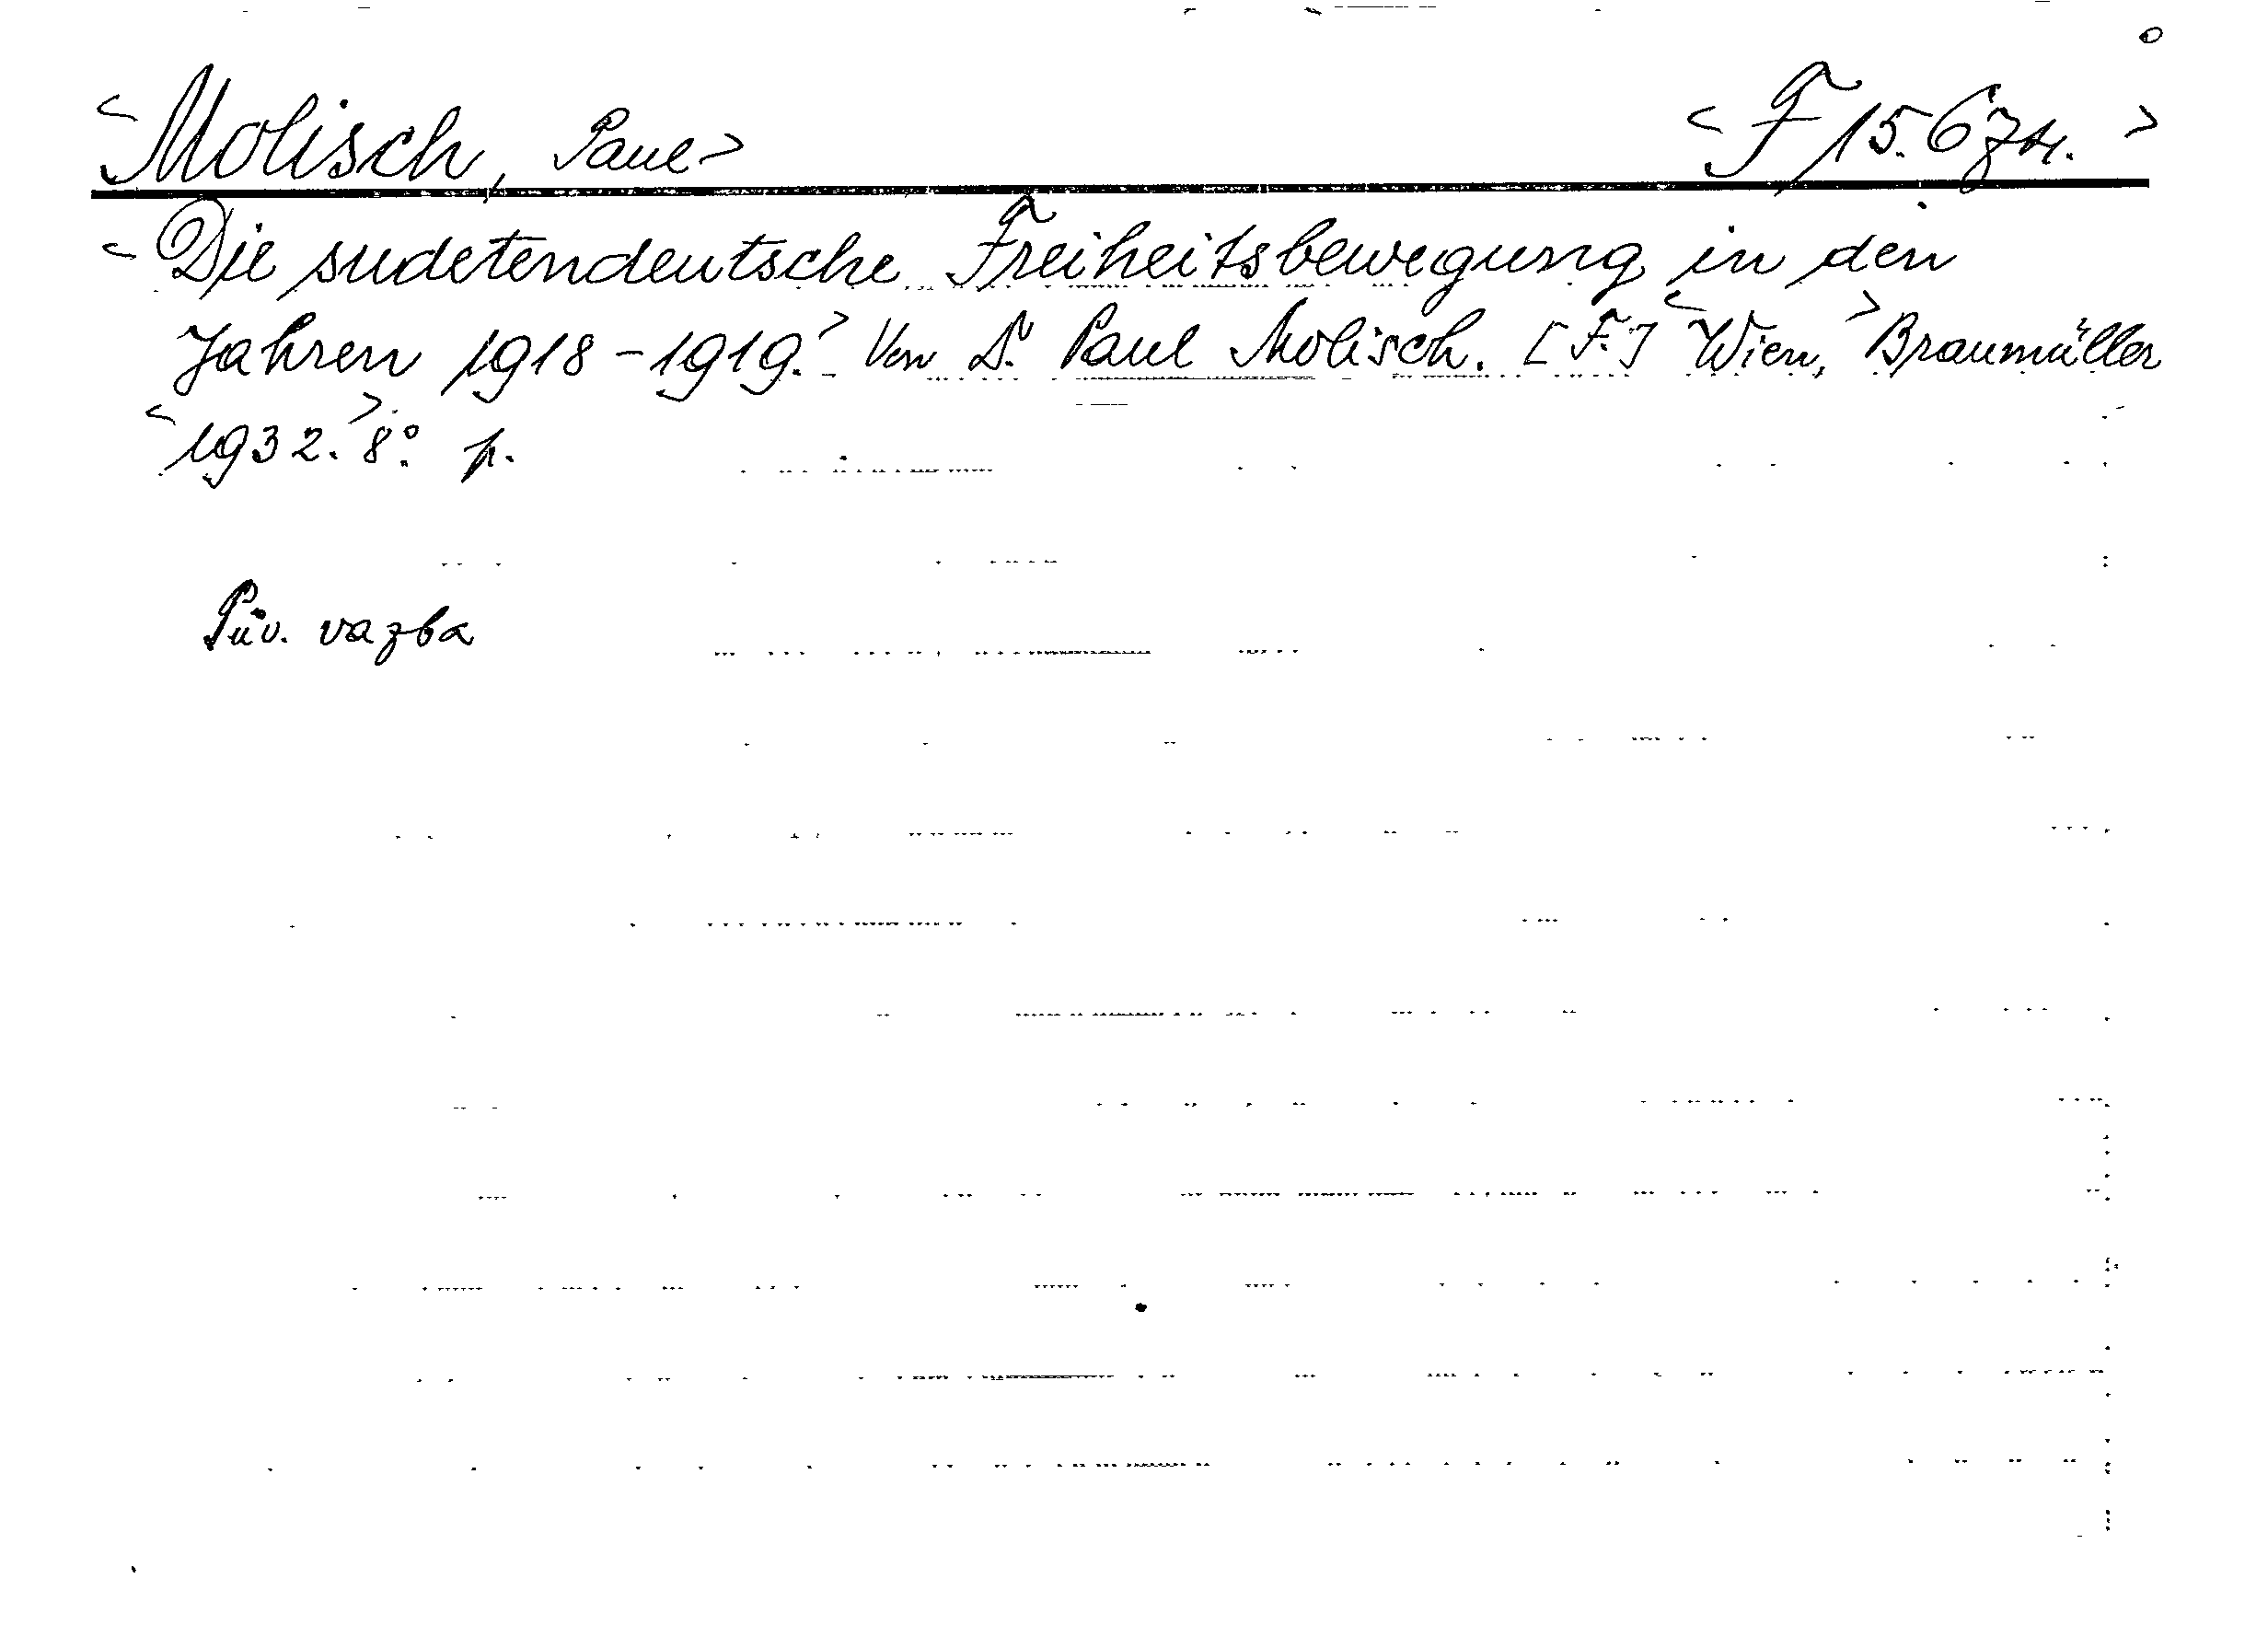 <Molisch, Paul> <F 15.674.>
<Die sudetendeutsche Freiheitsbewegung in den
Jahren 1918-1919.> Von Dr. Paul Molisch. [F.] <Wien,> Braumüller
<1932.> 8°. p.
Pův. vazba